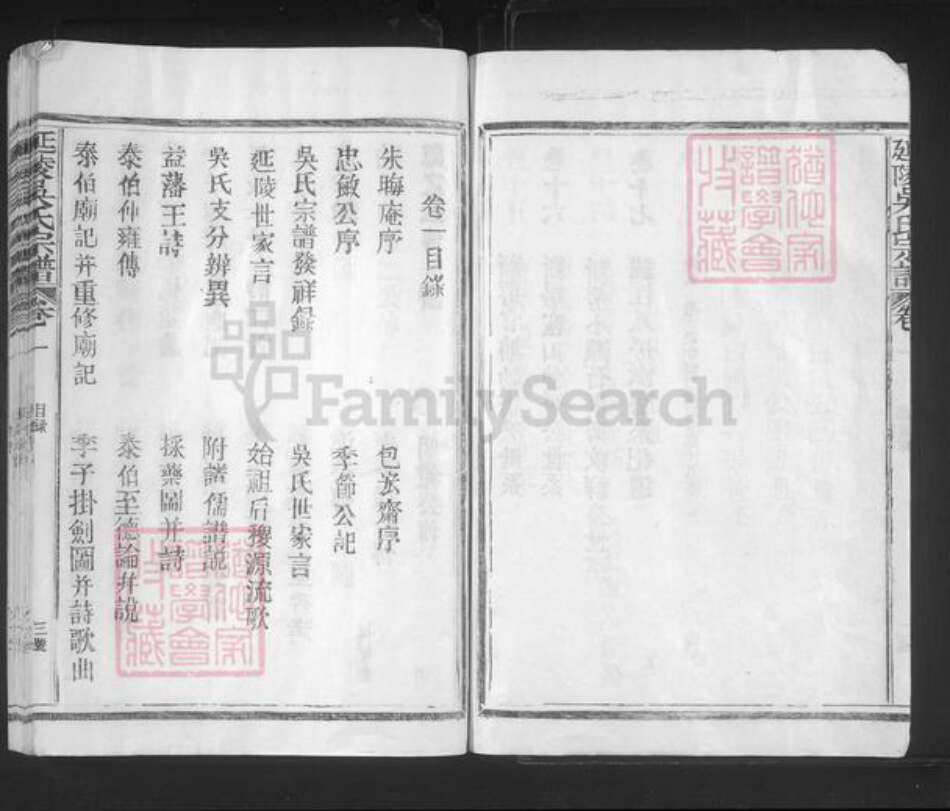 延陵吳氏宗譜 卷
猶他家譜學會收藏
卷一目錄
朱晦庵序 包宏齋序
忠敏公序 季節公記
吳氏宗譜發祥錄 吳氏世家言
延陵世家言 始祖后稷源流歌
吳氏支分辨異 附諸儒譜說
益藩王詩 採藥圖并詩
泰伯仲雍傳 泰伯至德論并說
泰伯廟記并重修廟記 季子掛劍圖并詩歌曲
延陵吳氏宗譜 卷一 目錄 三號
猶他家譜學會收藏
FamilySearch